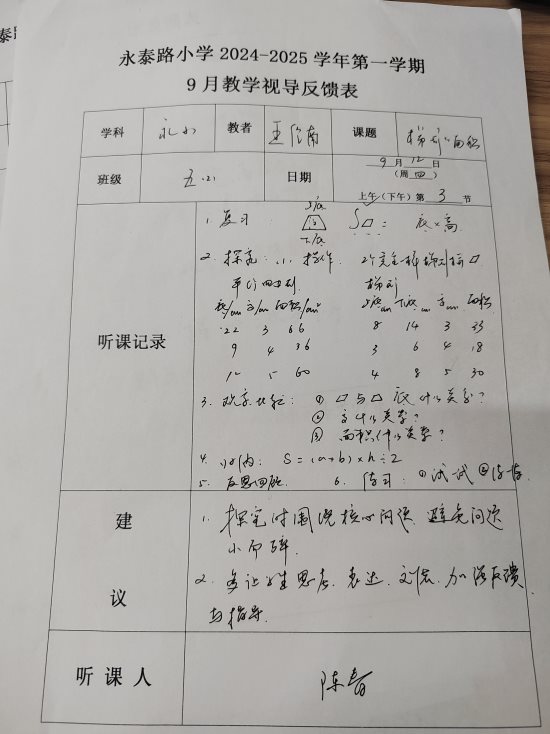 永泰路小学2024-2025学年第一学期
9月教学视导反馈表
学科 教者 王 南 课题 梯形的面积
班级 五(2) 日期 9月12日
(周四)
上午(下午)第3节
听课记录
1. 复习: 上底 S▱ = 底×高
高
下底
2. 探究: (1) 操作. 2个完全一样梯形拼▱
平行四边形 梯形
底/cm 高/cm 面积/cm² 上底cm 下底cm 高cm 面积
22 3 66 8 14 3 33
9 4 36 3 6 4 18
12 5 60 4 8 5 30
3. 观察比较: ① ▱与 底有什么关系?
② 高什么关系?
③ 面积什么关系?
4. 归纳: S=(a+b)×h÷2
5. 反思回顾 6. 练习: ①试试 ②练一练
建
议
1. 探究时围绕核心问题, 避免问题
小而碎.
2. 多让学生思考、表达、 加强反馈
与指导.
听课人 陈春